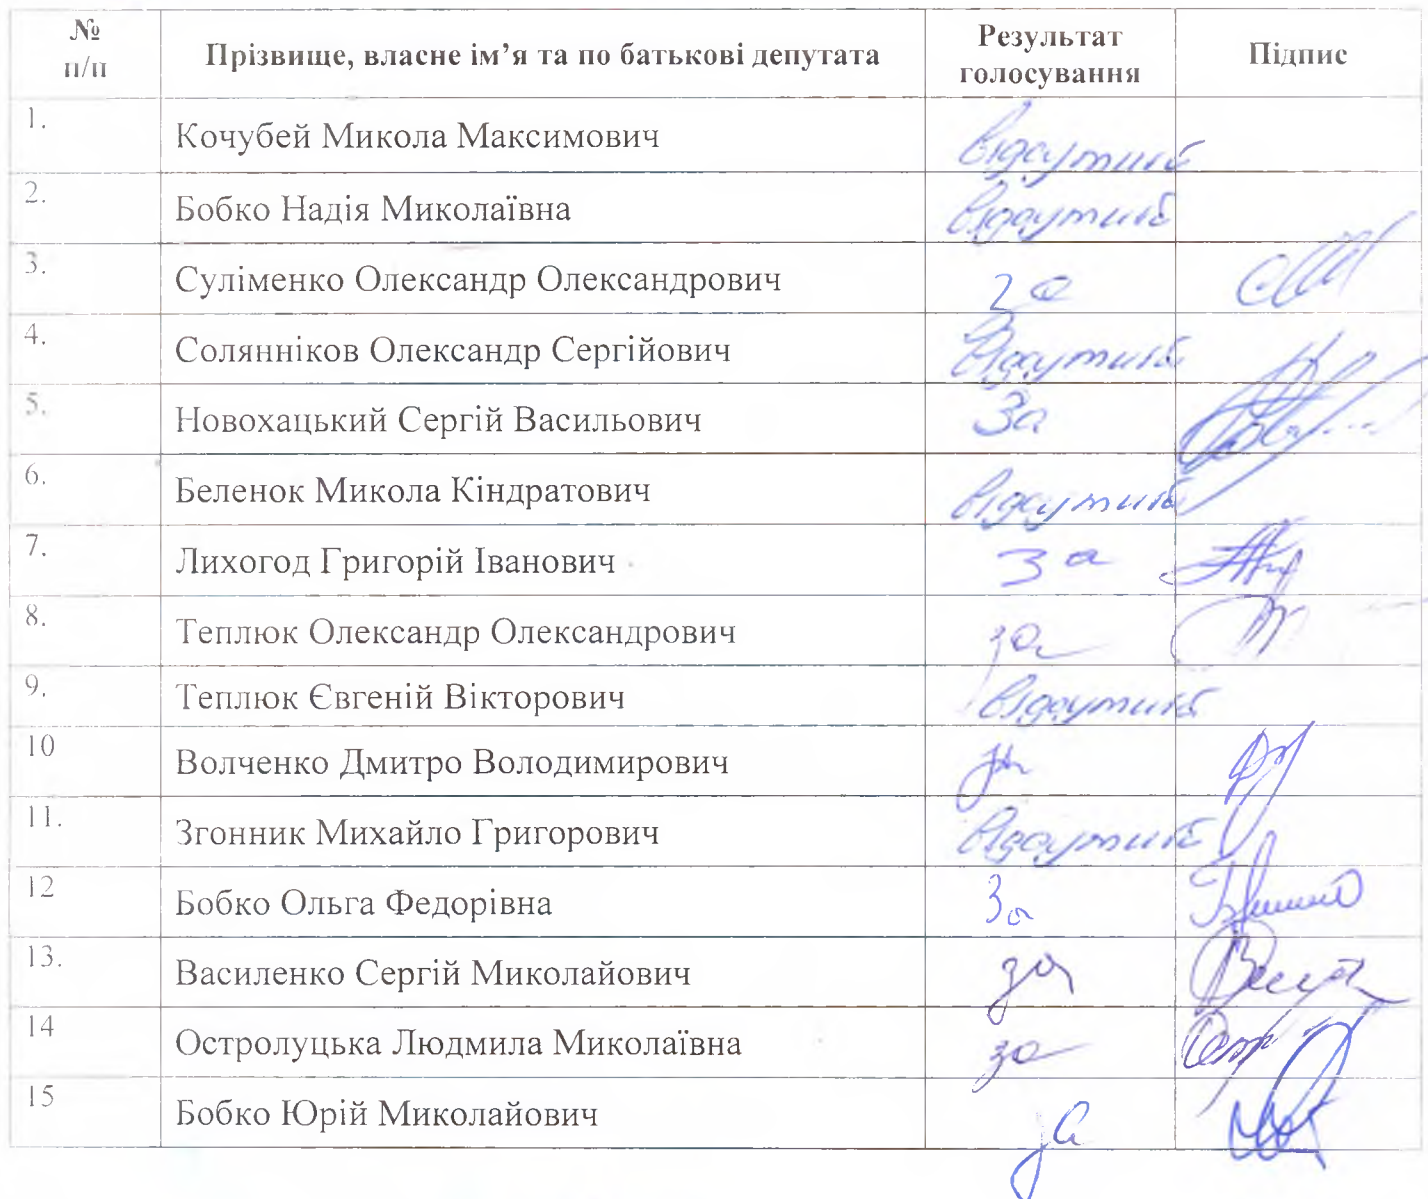 № п/п Прізвище, власне ім’я та по батькові депутата Результат голосування Підпис
1. Кочубей Микола Максимович відсутній
2. Бобко Надія Миколаївна відсутній
3. Суліменко Олександр Олександрович За
4. Солянніков Олександр Сергійович Відсутній
5. Новохацький Сергій Васильович За
6. Беленок Микола Кіндратович відсутній
7. Лихогод Григорій Іванович За
8. Теплюк Олександр Олександрович за
9. Теплюк Євгеній Вікторович відсутній
10 Волченко Дмитро Володимирович за
11. Згонник Михайло Григорович відсутній
12 Бобко Ольга Федорівна За
13. Василенко Сергій Миколайович за
14 Остролуцька Людмила Миколаївна за
15 Бобко Юрій Миколайович за